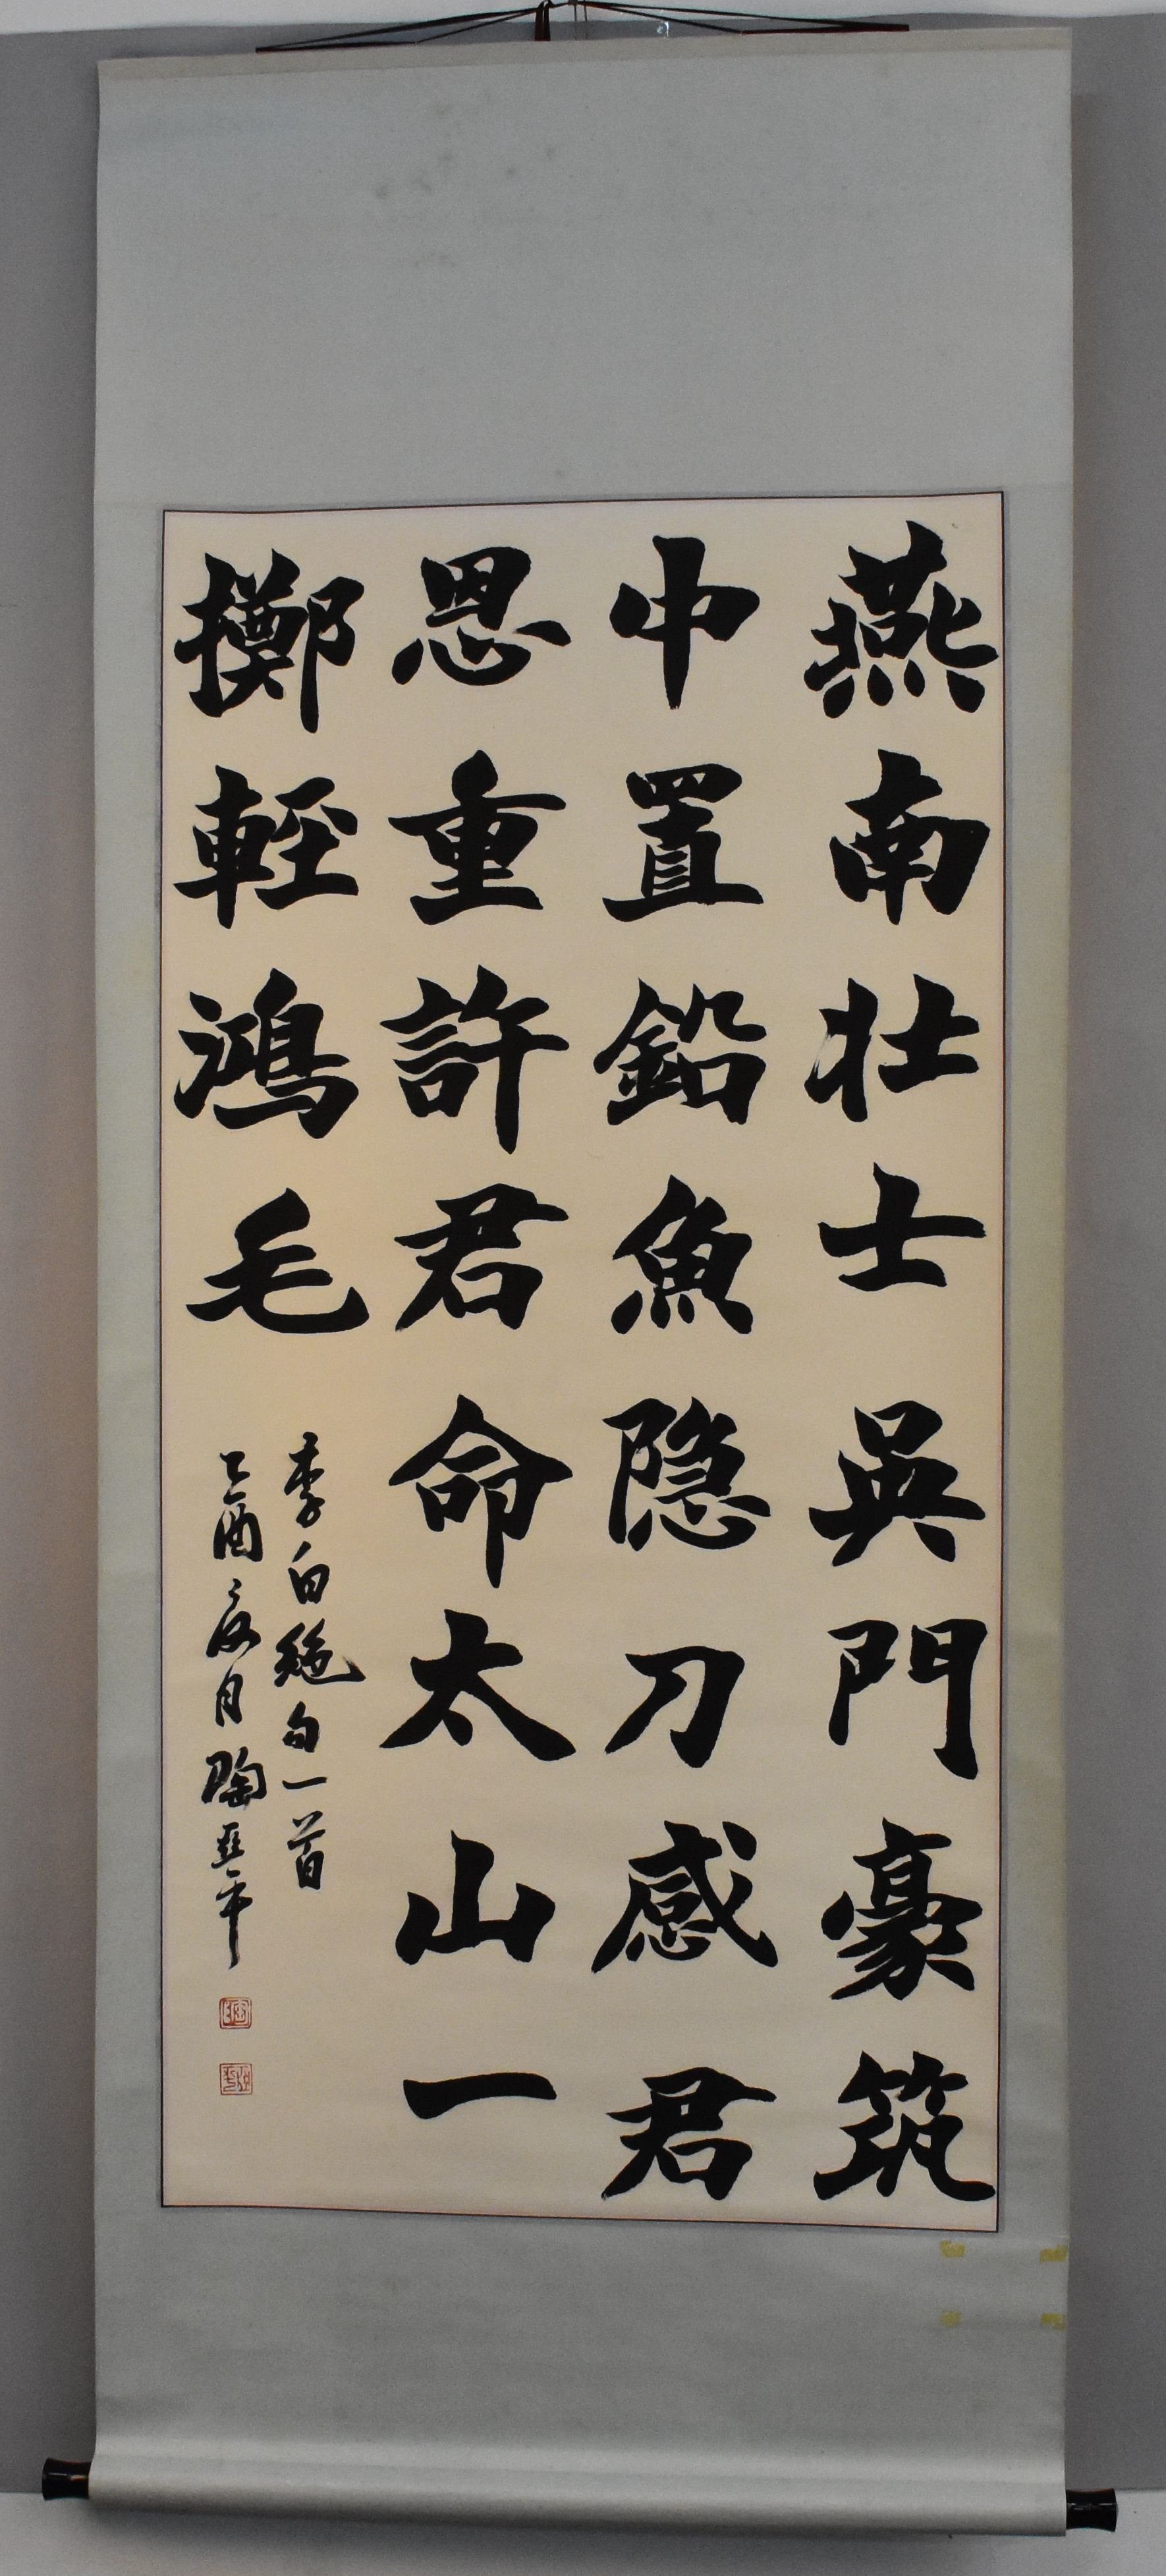 燕南壮士吳門豪筑
中置鉛魚隐刀感君
恩重許君命太山一
擲輕鴻毛
李白絶句一首
乙酉夏月陶亞平